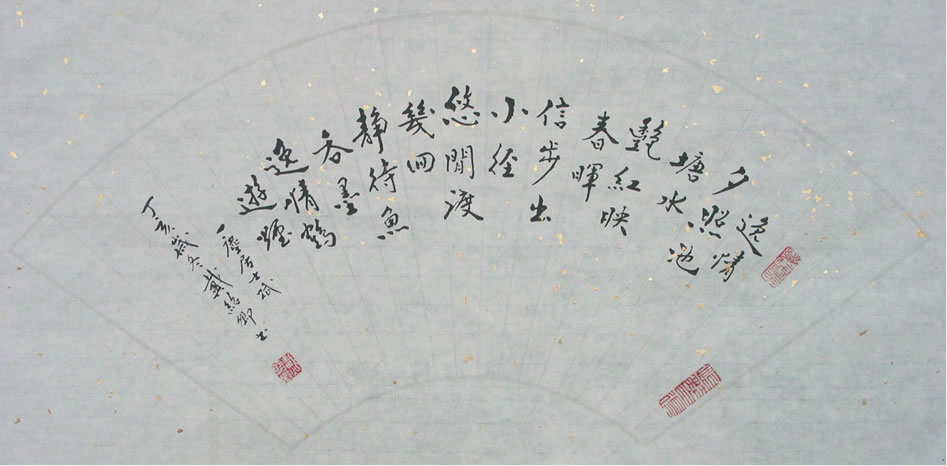 逸情
夕照
塘水池
艷紅映
春暉
信步出
小徑
悠閒渡
幾回
靜待魚
吞墨
逸情鶴
避煙
一塵居士
丁亥歲冬戴 卿書